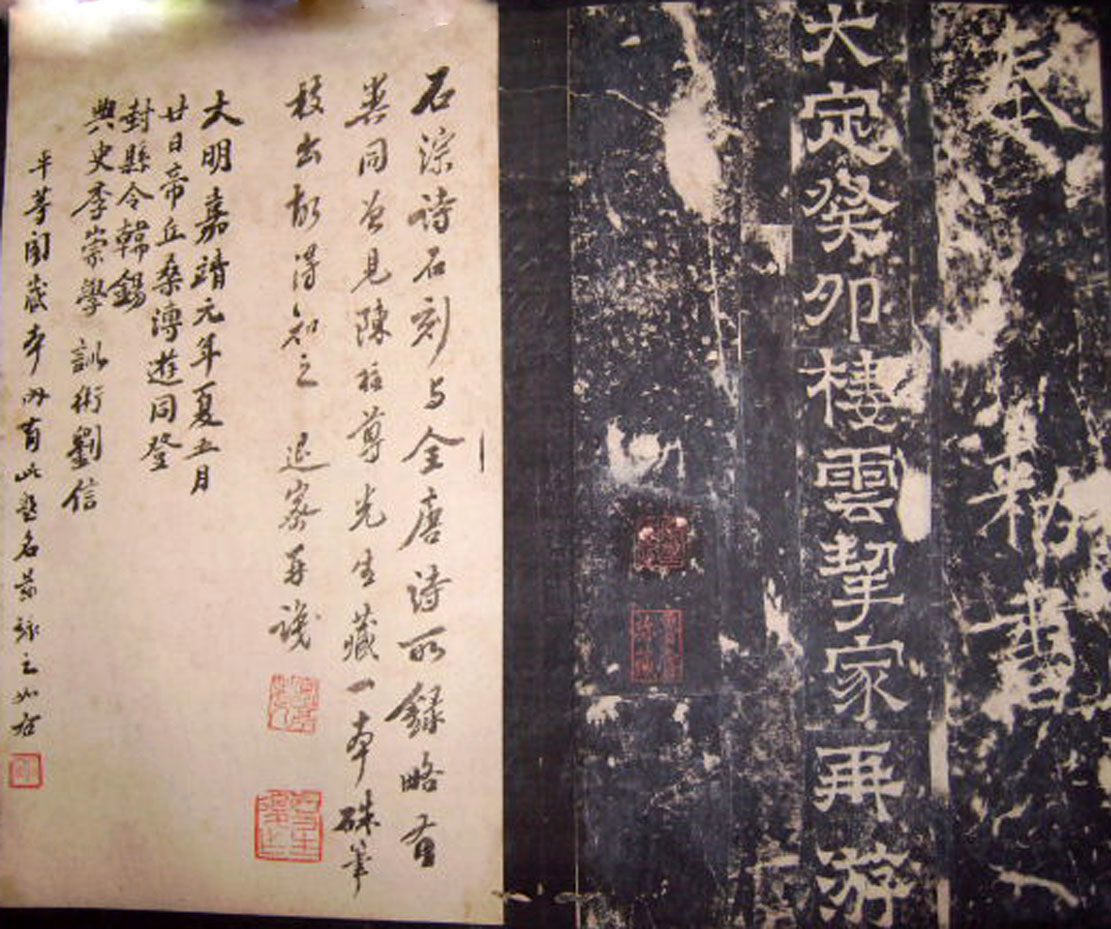 奉勑書
大定癸卯棲雲挈家再游
石淙诗石刻与全唐诗所録略有
異同曾見陳柱尊先生藏一本硃筆
校出故得知之 退密再識
大明嘉靖元年夏五月
廿日帝丘桑溥遊同登
封縣令韓錫
典史李崇學 訓術劉信
平等閣藏本内有此題名茲録之如右